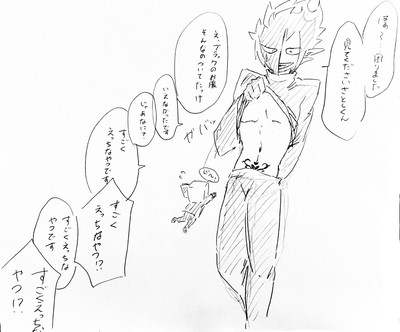 はぁ〜…困りました
見てくださいさとしくん
ガバッ
え、ブラックのお腹
そんなのついてたっけ
いえなかったです
じゃあなに?
すごく
えっちなやつです
すごく
えっちなやつ!?
すごくえっちな
やつです
すごくえっちな
やつ!?